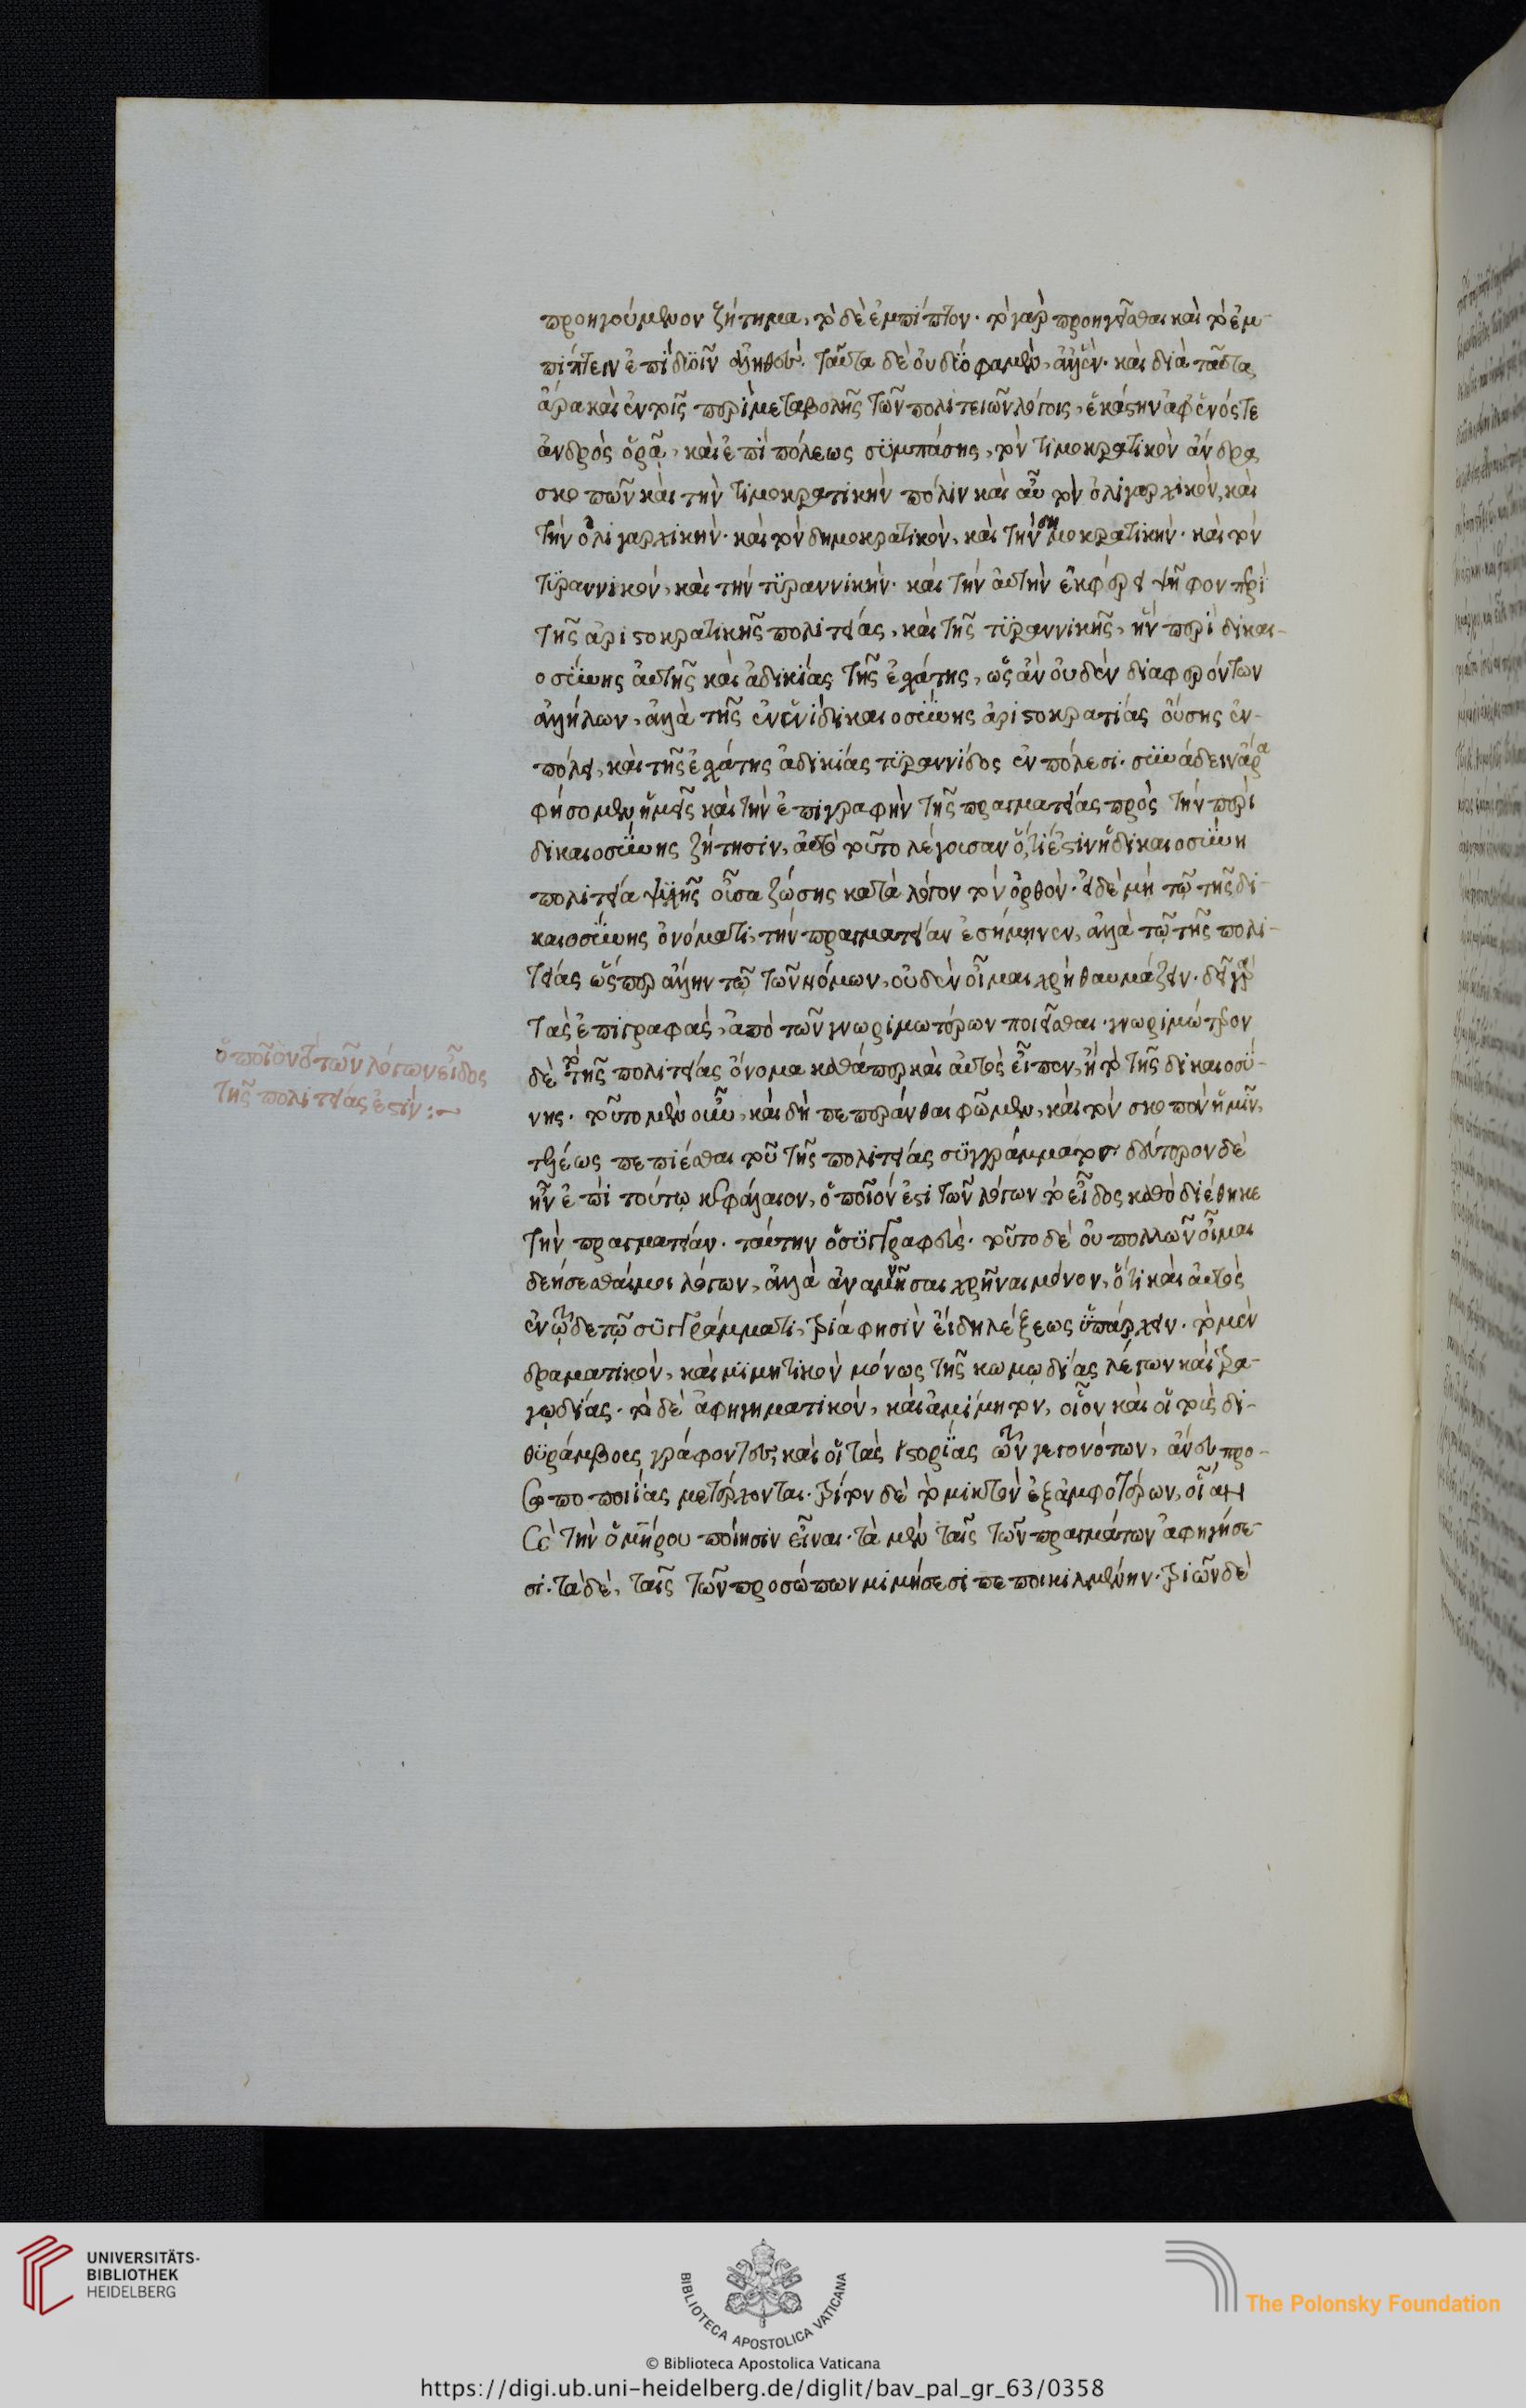 προηγούμενον ζήτημα, τὸ δὲ ἐμπίπτον. τὸ γὰρ προηγεῖσθαι καὶ τὸ ἐμ-
πίπτειν ἐπὶ δυοῖν ἀληθές. ταῦτα δὲ οὐ δύο φαμὲν, ἀλλ' ἕν. καὶ διὰ ταῦτα
ἄρα καὶ ἐν τοῖς περὶ μεταβολῆς τῶν πολιτειῶν λόγοις, ἑκάστην ἀφ' ἑνός τε
ἀνδρὸς ὁρᾷ, καὶ ἐπὶ πόλεως συμπάσης, τὸν τιμοκρατικὸν ἄνδρα
σκοπῶν καὶ τὴν τιμοκρατικὴν πόλιν καὶ αὖ τὸν ὀλιγαρχικὸν, καὶ
τὴν ὀλιγαρχικήν. καὶ τὸν δημοκρατικὸν, καὶ τὴν δημοκρατικήν. καὶ τὸν
τυραννικὸν, καὶ τὴν τυραννικήν. καὶ τὴν αὐτὴν ἐκφέρει ψῆφον περὶ
τῆς ἀριστοκρατικῆς πολιτείας, καὶ τῆς τυραννικῆς, ἣν περὶ δικαι-
οσύνης αὐτῆς καὶ ἀδικίας τῆς ἐσχάτης, ὡς ἂν οὐδὲν διαφερόντων
ἀλλήλων, ἀλλὰ τῆς ἐν ἑνὶ δικαιοσύνης ἀριστοκρατίας οὔσης ἐν
πόλει, καὶ τῆς ἐσχάτης ἀδικίας τυραννίδος ἐν πόλεσι. συνάδειν ἄρα
φήσομεν ἡμεῖς καὶ τὴν ἐπιγραφὴν τῆς πραγματείας πρὸς τὴν περὶ
δικαιοσύνης ζήτησιν, αὐτὸ τοῦτο λέγουσαν ὅτι ἐστὶν ἡ δικαιοσύνη
πολιτεία ψυχῆς οὖσα ζώσης κατὰ λόγον τὸν ὀρθόν. εἰ δὲ μὴ τῷ τῆς δι-
καιοσύνης ὀνόματι, τὴν πραγματείαν ἐσήμηνεν, ἀλλὰ τῷ τῆς πολι-
τείας ὥσπερ ἄλλην τῷ τῶν νόμων, οὐδὲν οἶμαι χρὴ θαυμάζειν. δεῖ γὰρ
τὰς ἐπιγραφὰς, ἀπὸ τῶν γνωριμωτέρων ποιεῖσθαι. γνωριμώτερον
δὲ τὸ τῆς πολιτείας ὄνομα καθάπερ καὶ αὐτὸς εἶπεν, ἢ τὸ τῆς δικαιοσύ-
νης. τοῦτο μὲν οὖν, καὶ δὴ πεπεράνθαι φῶμεν, καὶ τὸν σκοπὸν ἡμῖν,
ὁποῖον τῶν λόγων εἶδος
τῆς πολιτείας ἐστίν :~
τελέως πεπιέσθαι τοῦ τῆς πολιτείας συγγράμματος δεύτερον δὲ
ἦν ἐπὶ τούτῳ κεφάλαιον, ὁποῖόν ἐστι τῶν λόγων τὸ εἶδος καθὸ διέθηκε
τὴν πραγματείαν. ταύτην ὁ συγγραφεύς. τοῦτο δὲ οὐ πολλῶν οἶμαι
δεήσεσθαί μοι λόγων, ἀλλὰ ἀναμνῆσαι χρῆναι μόνον, ὅτι καὶ αὐτὸς
ἐν τῷδε τῷ συγγράμματι, τρία φησὶν εἴδη λέξεως ὑπάρχειν. τὸ μὲν
δραματικὸν, καὶ μιμητικὸν μόνως τῆς κωμῳδίας λέγων καὶ τρα-
γῳδίας. τὸ δὲ ἀφηγηματικὸν, καὶ ἀμίμητον, οἷον καὶ οἱ τοὺς δι-
θυράμβους γράφοντες, καὶ οἱ τὰς ἱστορίας τῶν γεγονότων, ἄνευ προ-
σωποποιίας μετέρχονται. τρίτον δὲ τὸ μικτὸν ἐξ ἀμφοτέρων, οἵαν
τὴν ὁμήρου ποίησιν εἶναι. τὰ μὲν ταῖς τῶν πραγμάτων ἀφηγήσε-
σι. τὰ δὲ, ταῖς τῶν προσώπων μιμήσεσι πεποικιλμένην. τριῶν δὲ
UNIVERSITÄTS-
BIBLIOTHEK
HEIDELBERG
BIBLIOTECA APOSTOLICA VATICANA
The Polonsky Foundation
© Biblioteca Apostolica Vaticana
https://digi.ub.uni-heidelberg.de/diglit/bav_pal_gr_63/0358